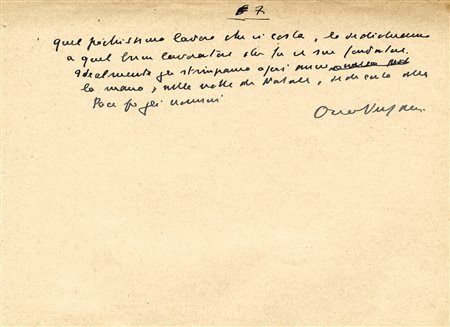 7
quel pochissimo lavoro che ci costa, lo dedichiamo
a quel buon lavoratore che fu il suo fondatore.
Idealmente gli stringiamo ogni anno
la mano, nella notte di Natale, dedicata alla
Pace fra gli uomini
Orio Vergani